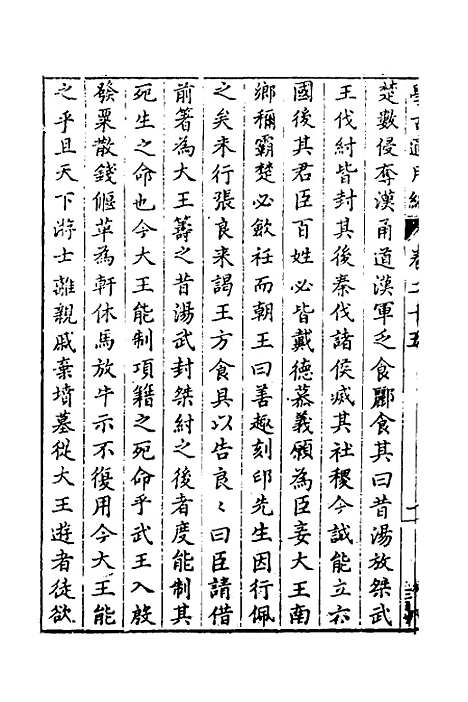 卷二十五
楚數侵奪漢甬道漢軍乏食酈食其曰昔湯放桀武
王伐紂皆封其後秦伐諸侯滅其社稷今誠能立六
國後其君臣百姓必皆戴德慕義願為臣妾大王南
鄉稱霸楚必斂衽而朝王曰善趣刻印先生因行佩
之矣未行張良來謁王方食具以告良〻曰臣請借
前箸為大王籌之昔湯武封桀紂之後者度能制其
死生之命也今大王能制項籍之死命乎武王入殷
發粟散錢偃革為軒休馬放牛示不復用今大王能
之乎且天下游士離親戚棄墳墓從大王遊者徒欲